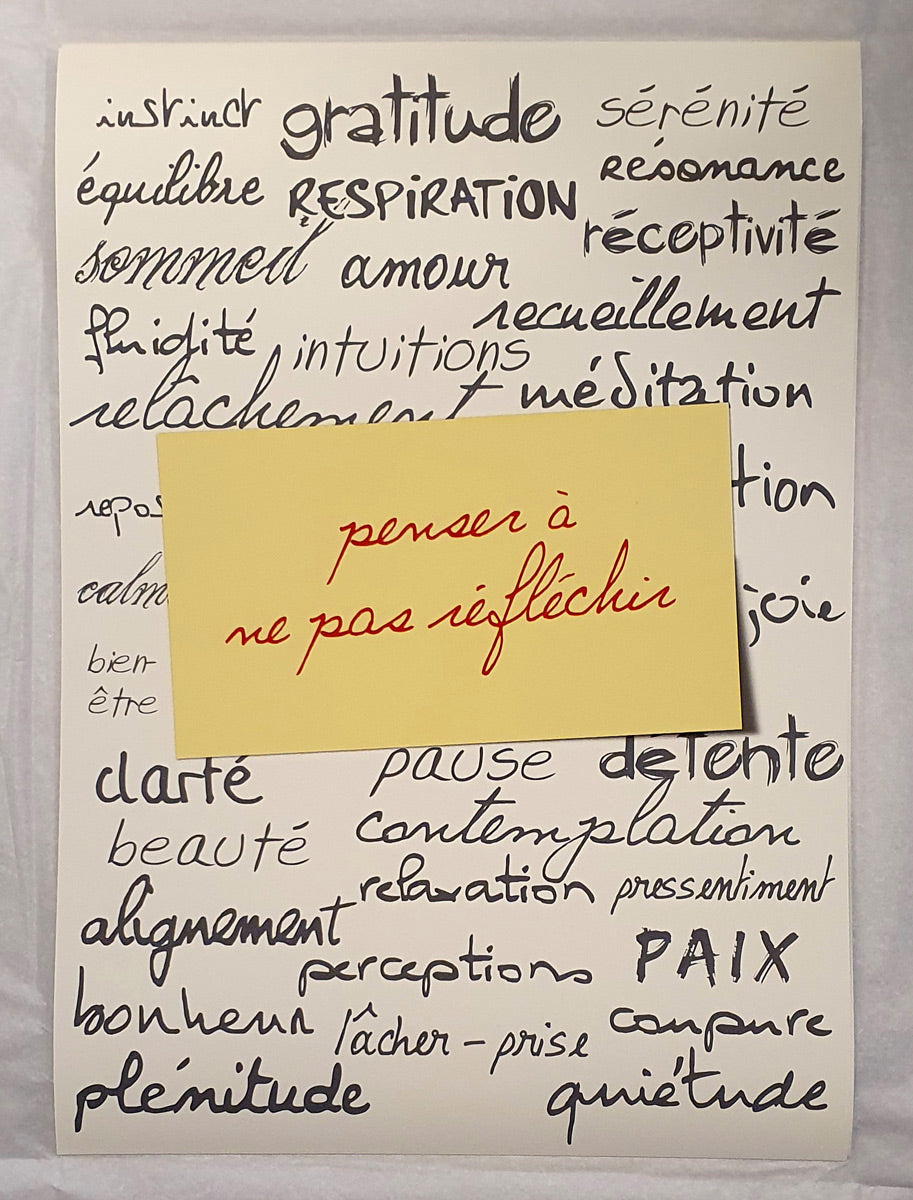 instinct gratitude sérénité
équilibre RESPIRATION résonance
sommeil amour réceptivité
fluidité intuitions recueillement
relâchement méditation
repos tion
penser à
ne pas réfléchir
calm joie
bien-
être
clarté pause détente
beauté contemplation
alignement relaxation pressentiment
perceptions PAIX
bonheur lâcher-prise coupure
plénitude quiétude